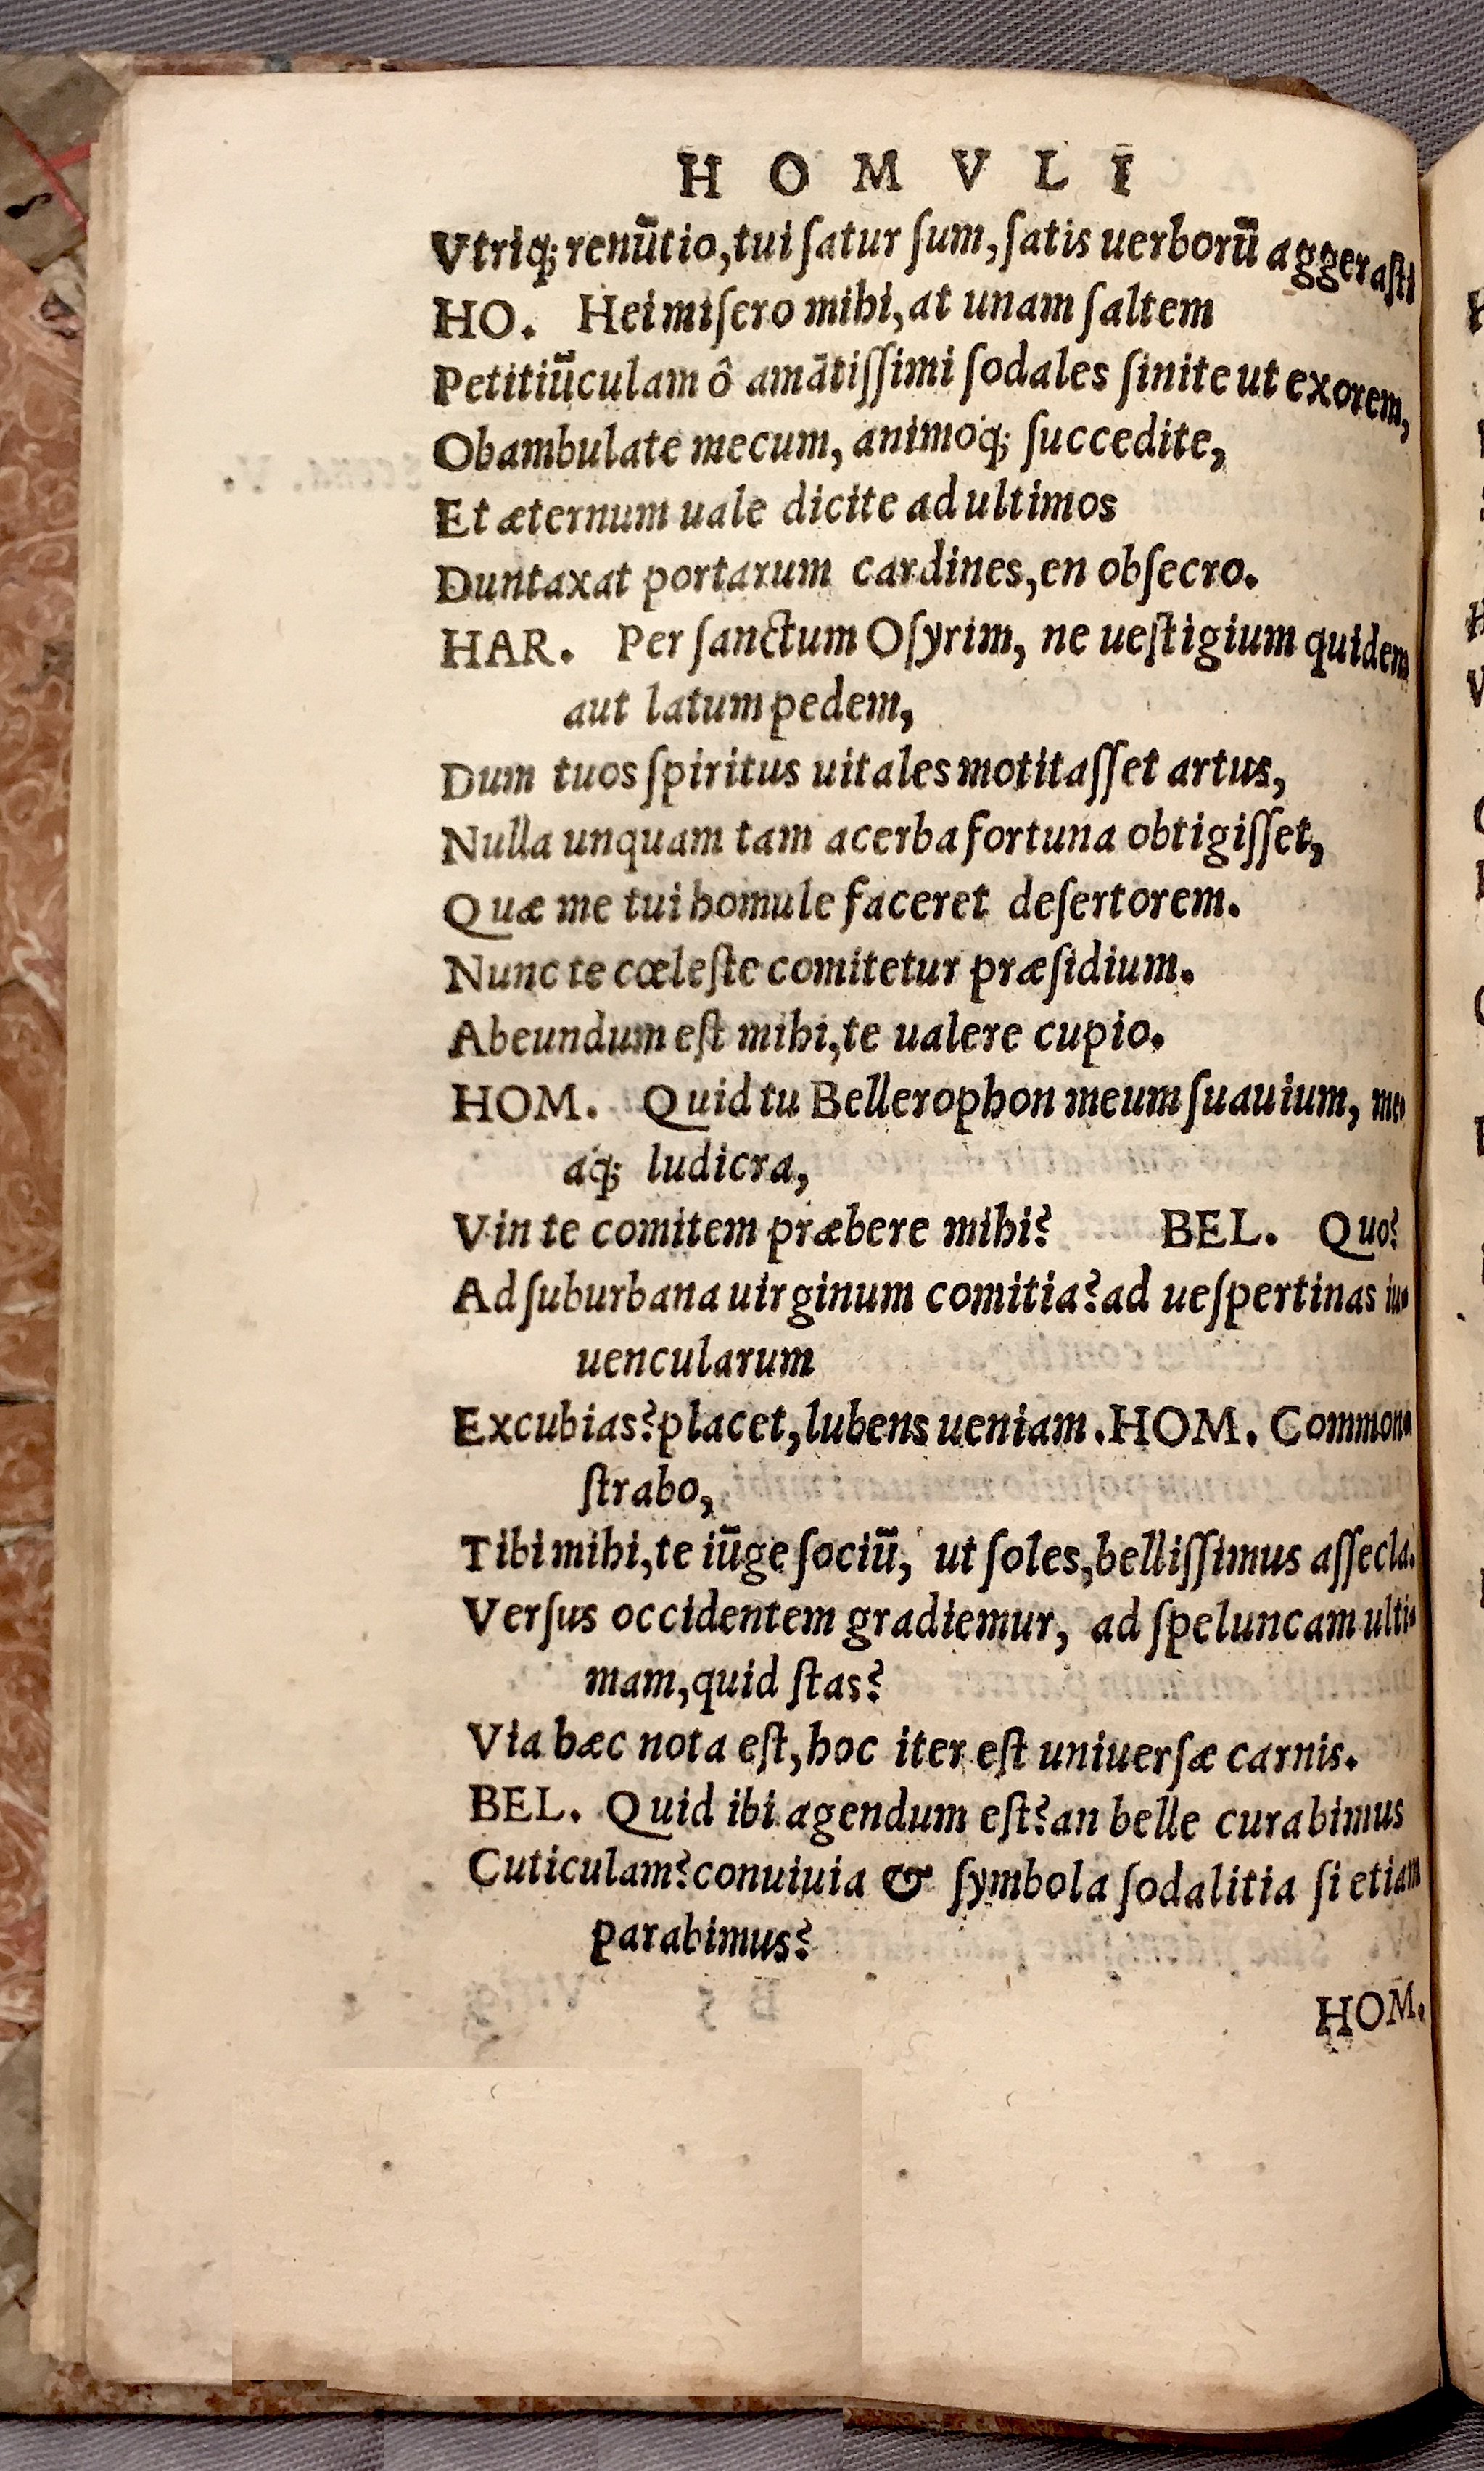 HOMVLI
Vtriq; renūtio, tui ſatur ſum, ſatis uerborū aggeraſti
HO. Hei miſero mihi, at unam ſaltem
Petitiūculam ô amātiſſimi ſodales ſinite ut exorem,
Obambulate mecum, animoq; ſuccedite,
Et æternum uale dicite ad ultimos
Duntaxat portarum cardines, en obſecro.
HAR. Per ſanctum Oſyrim, ne ueſtigium quidem
aut latum pedem,
Dum tuos ſpiritus uitales motitaſſet artus,
Nulla unquam tam acerba fortuna obtigiſſet,
Quæ me tui homule faceret deſertorem.
Nunc te cœleſte comitetur præſidium.
Abeundum eſt mihi, te ualere cupio.
HOM. Quid tu Bellerophon meum ſuauium, me-
aq; ludicra,
Vin te comitem præbere mihi? BEL. Quo?
Ad ſuburbana uirginum comitia? ad ueſpertinas iu-
uencularum
Excubias? placet, lubens ueniam. HOM. Common-
ſtrabo,
Tibi mihi, te iūge ſociū, ut ſoles, belliſſimus aſſecla.
Verſus occidentem gradiemur, ad ſpeluncam ulti-
mam, quid ſtas?
Via hæc nota eſt, hoc iter eſt uniuerſæ carnis.
BEL. Quid ibi agendum eſt? an belle curabimus
Cuticulam? conuiuia & ſymbola ſodalitia ſi etiam
parabimus?
HOM.